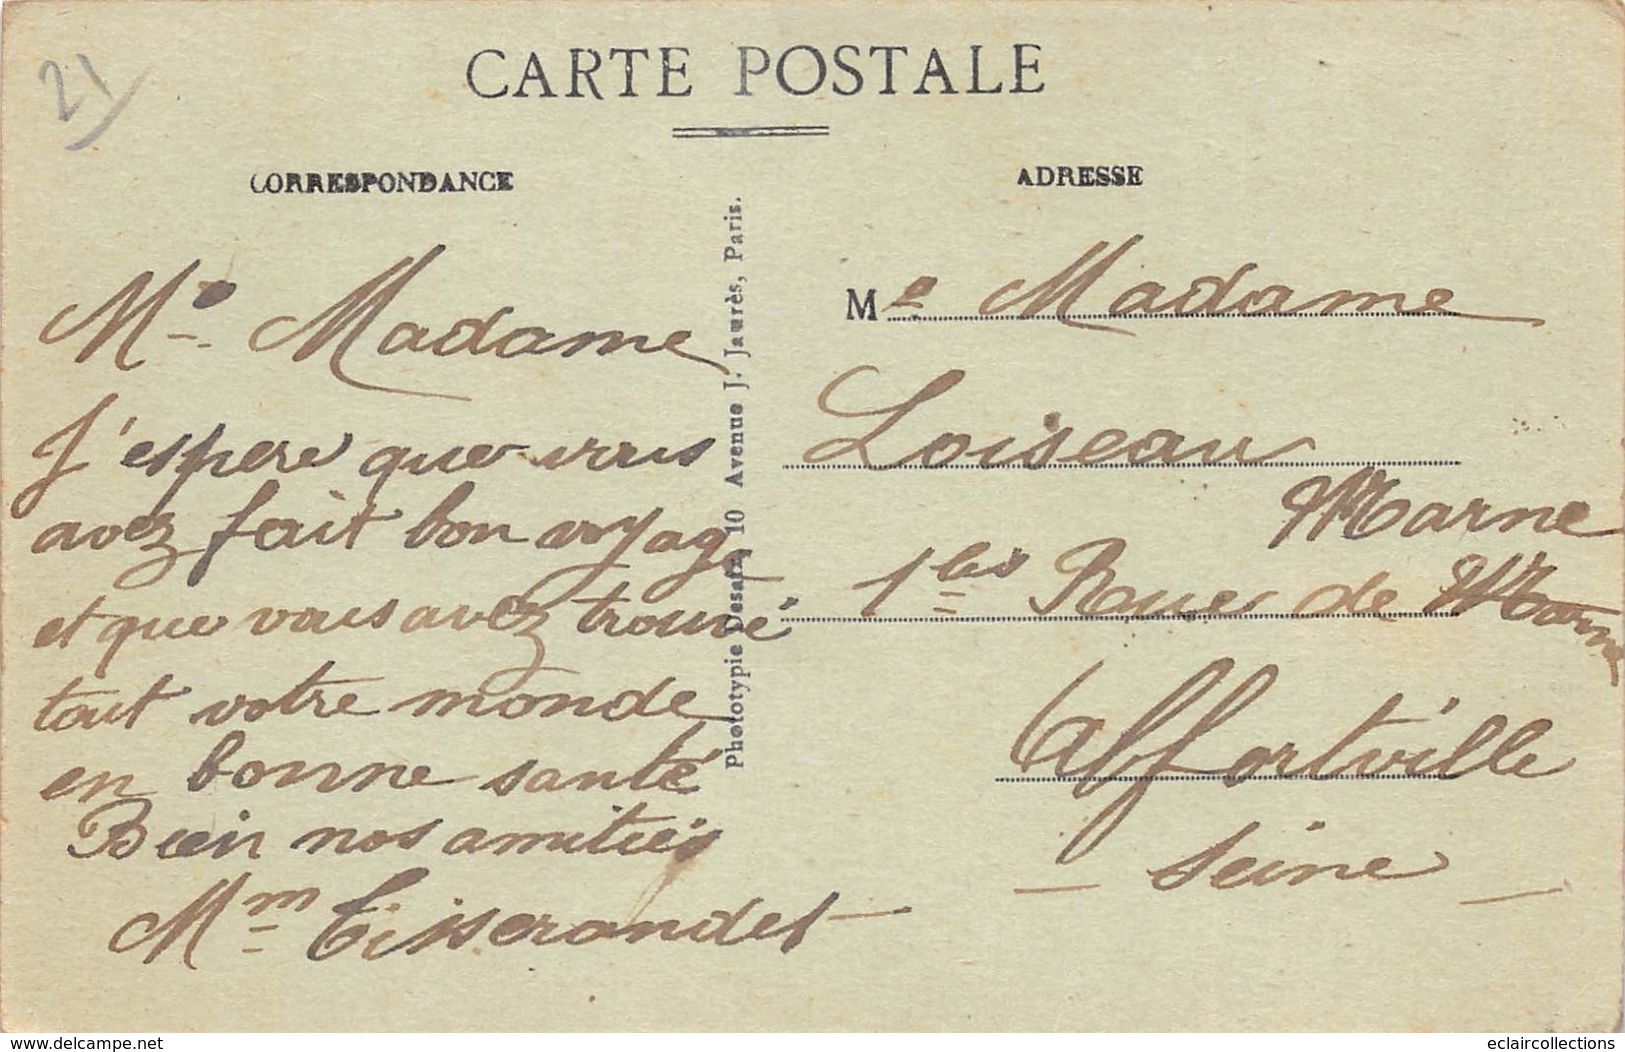 21
CARTE POSTALE
CORRESPONDANCE
ADRESSE
Me Madame
J'espere que vous
avez fait bon voyage
et que vous avez trouvé
tout votre monde
en bonne santé
Bien nos amitiés
Mm Tisserandet
Phototypie Desaix, 10 Avenue J. Jaurès, Paris.
Me Madame
Loiseau
Marne
1 bis Rue de Marne
Alfortville
Seine
www.delcampe.net
eclaircollections